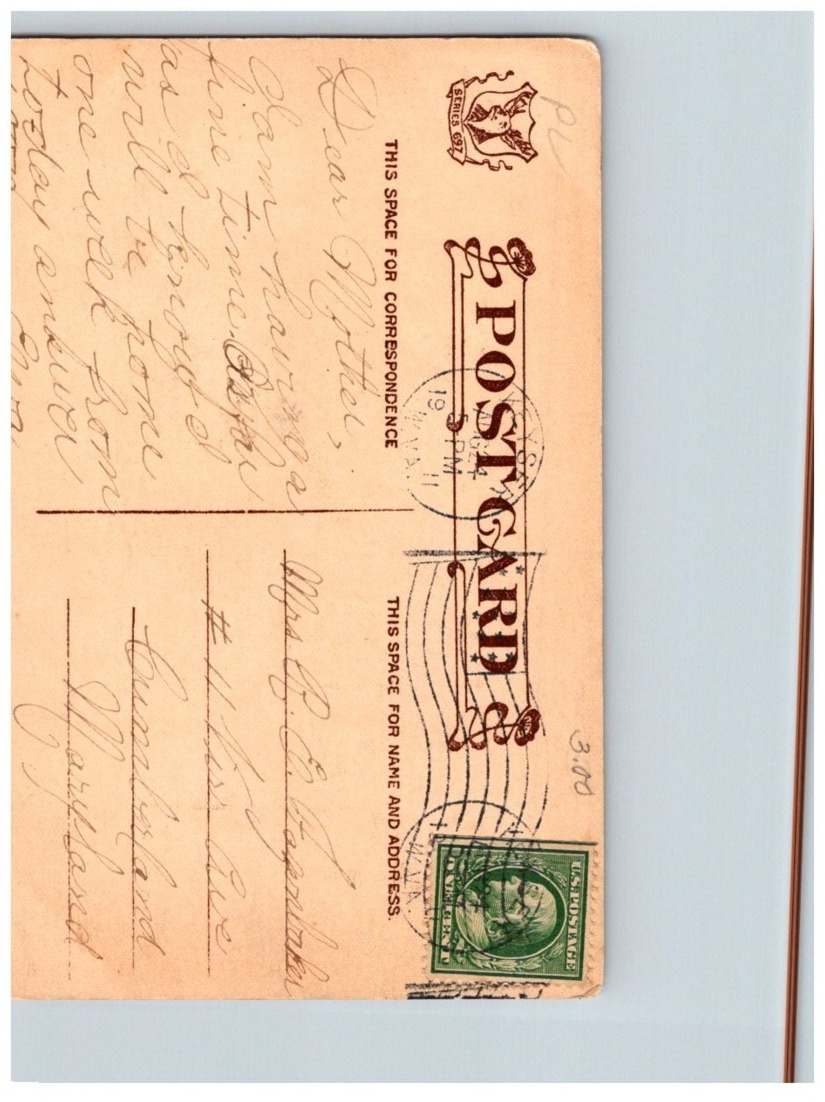 PL
SERIES 697
POST CARD
3.00
U.S. POSTAGE
ONE CENT
5 PM
19 11
W.VA.
THIS SPACE FOR CORRESPONDENCE
Dear Mother,
I am having a
fine time.
as I know I
will be home
one week from
today answer
THIS SPACE FOR NAME AND ADDRESS.
Mrs
# 11 Ave
Cumberland
Maryland